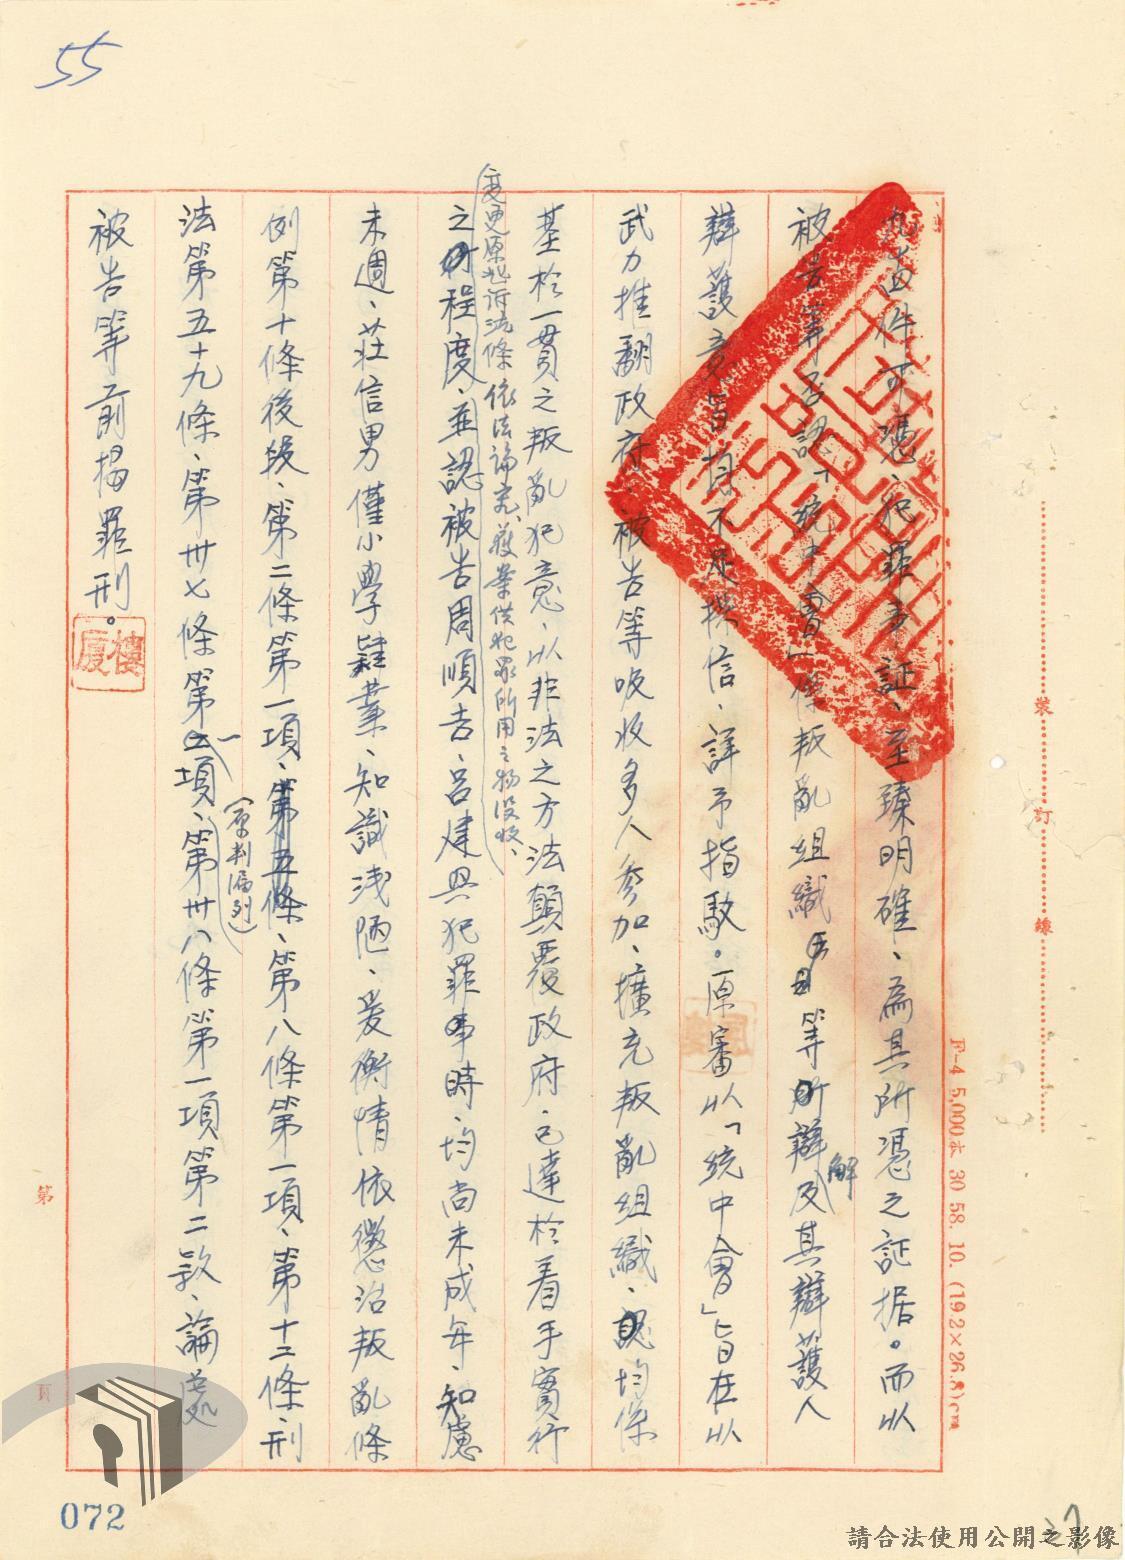 55
可憑、犯罪事証、至臻明確、為其所憑之証据。而以
被告等否認「統中會」係叛亂組織等所辯解及其辯護人
辯護意旨均不足採信、詳予指駁。原審以「統中會」旨在以
武力推翻政府、被告等吸收多人參加、擴充叛亂組織、均係
基於一貫之叛亂犯意、以非法之方法顛覆政府、已達於着手實行
變更原起訴法條依法論究、獲案供犯罪所用之物沒收、
之程度、並認被告周順吉、呂建興犯罪時、均尚未成年、知慮
未週、莊信男僅小學肄業、知識浅陋、爰衡情依懲治叛亂條
例第十條後段、第二條第一項、第五條、第八條第一項、第十二條刑
(原判漏列)
法第五十九條、第卅七條第一項、第卅八條第一項第二款、論處
被告等前揭罪刑。
樓廈
裝訂線
F-4 5,000本 30 58. 10. (19.2×26.8)cm
第
頁
072
27
請合法使用公開之影像